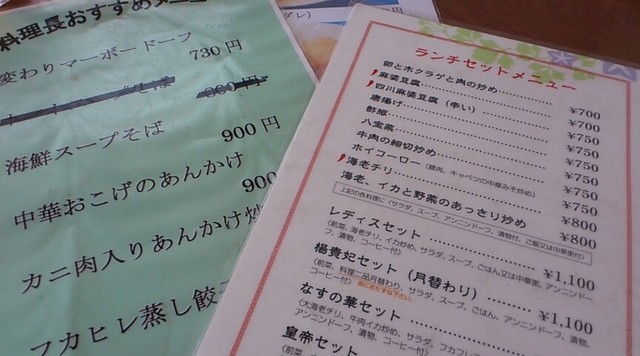 料理長おすすめメニュー
変わりマーボードーフ 730円
海鮮スープそば 900円
中華おこげのあんかけ 900
カニ肉入りあんかけ炒
フカヒレ蒸し餃子
ランチセットメニュー
卵と木クラゲと肉の炒め ¥700
麻婆豆腐 ¥700
四川麻婆豆腐(辛い) ¥750
唐揚げ ¥750
酢豚 ¥750
八宝菜 ¥750
牛肉の細切炒め ¥750
ホイコーロー(豚肉、キャベツの中華みそ炒め) ¥750
海老チリ ¥800
海老、イカと野菜のあっさり炒め ¥800
レディスセット ¥1,100
(前菜、海老チリ、イカ炒め、サラダ、スープ、ごはん又は中華粥、アンニンドーフ、漬物、コーヒー付)
楊貴妃セット(月替わり) ¥1,100
(前菜、料理二品月替わり、サラダ、スープ、ごはん又は中華粥、アンニンドーフ、漬物、コーヒー付)
なすの華セット
(大海老チリ、牛肉イカ炒め、サラダ、フカ
アンニンドーフ、漬物、コーヒー付)
皇帝セット